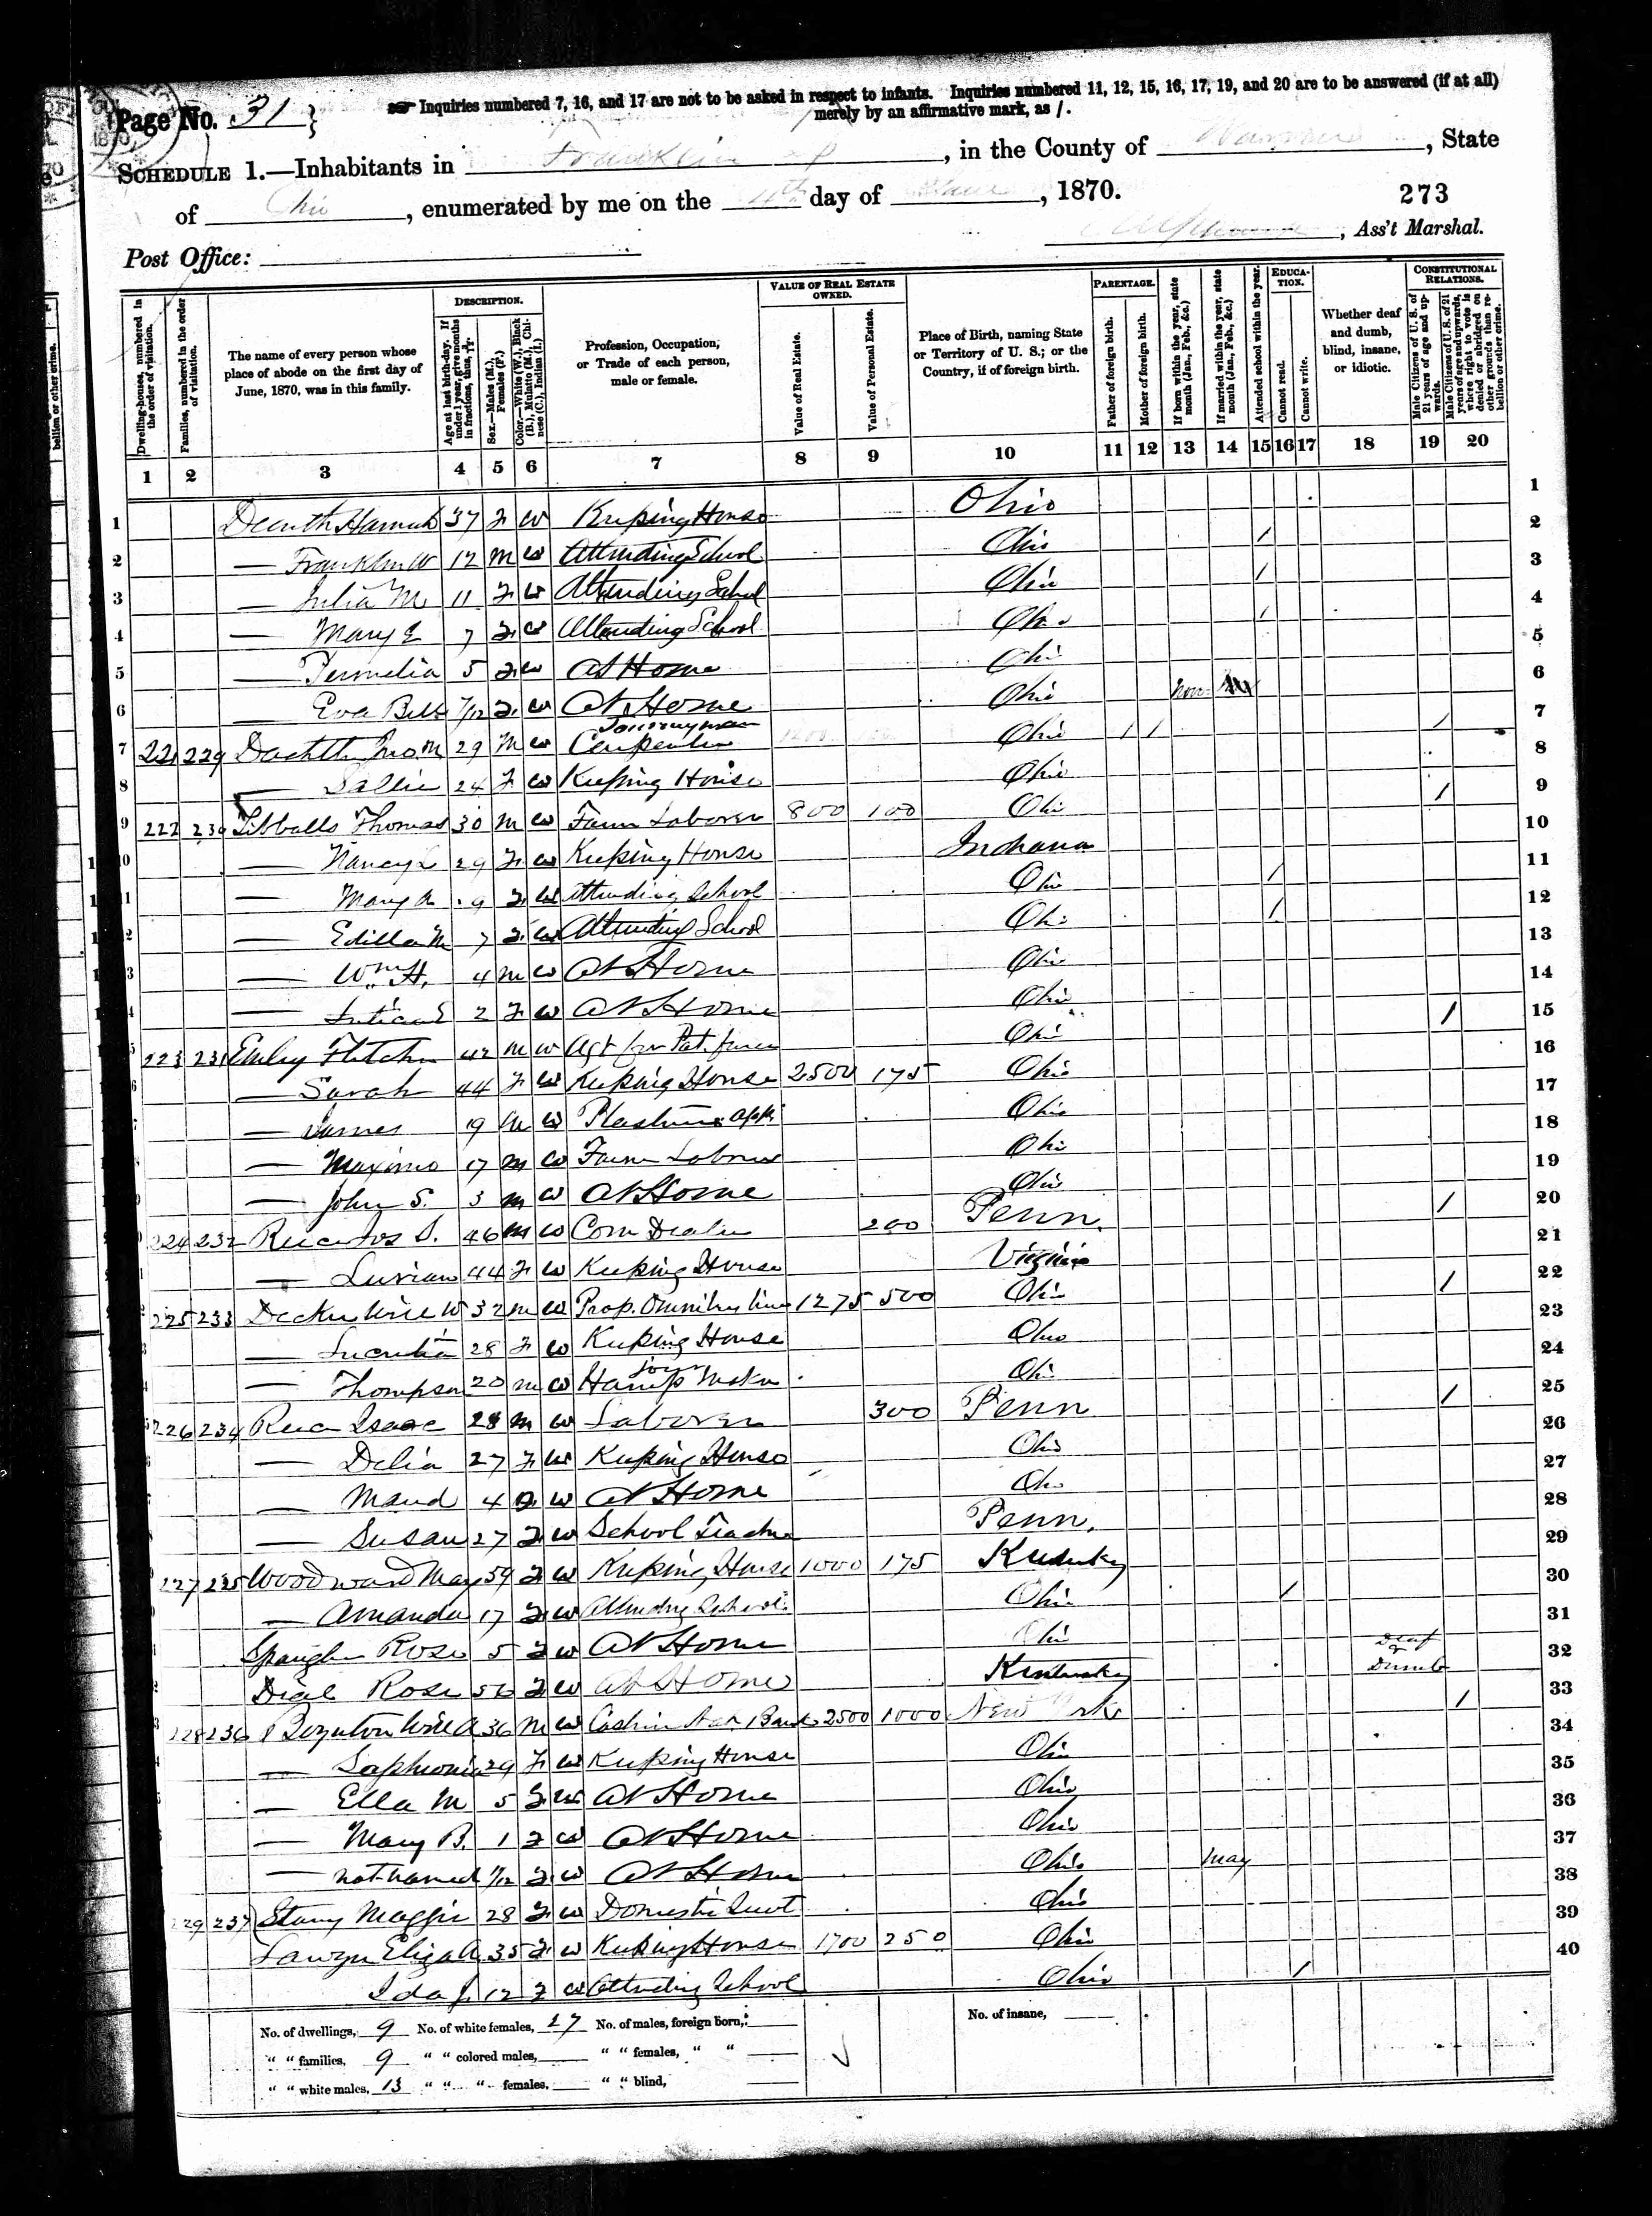 Page No. 31
Inquiries numbered 7, 16, and 17 are not to be asked in respect to infants. Inquiries numbered 11, 12, 15, 16, 17, 19, and 20 are to be answered (if at all)
merely by an affirmative mark, as /.
SCHEDULE 1.—Inhabitants in Franklin, in the County of Warren, State
of Ohio, enumerated by me on the day of June, 1870.
273
, Ass't Marshal.
Post Office:
Dwelling-houses, numbered in the order of visitation.
Families, numbered in the order of visitation.
The name of every person whose place of abode on the first day of June, 1870, was in this family.
DESCRIPTION.
Age at last birth-day. If under 1 year, give months in fractions, thus,
Sex.—Males (M.), Females (F.)
Color.—White (W.), Black (B.), Mulatto (M.), Chinese (C.), Indian (I.)
Profession, Occupation, or Trade of each person, male or female.
VALUE OF REAL ESTATE OWNED.
Value of Real Estate.
Value of Personal Estate.
Place of Birth, naming State or Territory of U. S.; or the Country, if of foreign birth.
PARENTAGE.
Father of foreign birth.
Mother of foreign birth.
If born within the year, state month (Jan., Feb., &c.)
If married within the year, state month (Jan., Feb., &c.)
Attended school within the year.
EDUCATION.
Cannot read.
Cannot write.
Whether deaf and dumb, blind, insane, or idiotic.
CONSTITUTIONAL RELATIONS.
Male Citizens of U. S. of 21 years of age and upwards.
Male Citizens of U. S. of 21 years of age and upwards, where right to vote is denied or abridged on other grounds than rebellion or other crime.
1 2 3 4 5 6 7 8 9 10 11 12 13 14 15 16 17 18 19 20
1 Hannah 37 F W Keeping House Ohio 1
2 — Franklin W 12 M W Attending School Ohio / 2
3 — Julia M 11 F W Attending School Ohio / 3
4 — Mary E 7 F W Attending School Ohio / 4
5 — Permelia 5 F W At Home Ohio 5
6 — Eva Bell 7/12 F W At Home Ohio Nov 6
7 221 229 Jno. M 29 M W Journeyman Carpenter Ohio / / / 7
8 — Sallie 24 F W Keeping House Ohio 8
9 222 230 Tibballs Thomas 30 M W Farm Laborer 800 100 Ohio / 9
10 — Nancy L 29 F W Keeping House Indiana 10
11 — Mary A 9 F W Attending School Ohio / 11
12 — Edilla M 7 F W Attending School Ohio / 12
13 — Wm H. 4 M W At Home Ohio 13
14 — 2 F W At Home Ohio 14
15 223 231 Emley Fletcher 42 M W Agt for Pat. fence Ohio / 15
16 — Sarah 44 F W Keeping House 2500 175 Ohio 16
17 — James 19 M W Ohio 17
18 — Maximo 17 M W Farm Laborer Ohio 18
19 — John S. 3 M W At Home Ohio 19
20 224 232 46 M W Corn Dealer 200 Penn. / 20
21 — 44 F W Keeping House Virginia 21
22 225 233 Decker Will W 32 M W Prop. Omnibus line 1275 500 Ohio / 22
23 — Lucretia 28 F W Keeping House Ohio 23
24 — Thompson 20 M W Ohio 24
25 226 234 Isaac 28 M W Laborer 300 Penn / 25
26 — Delia 27 F W Keeping House Ohio 26
27 — Maud 4 F W At Home Ohio 27
28 — Susan 27 F W School Teacher Penn. 28
29 227 235 Woodward Mary 59 F W Keeping House 1000 175 Kentucky 29
30 — Amanda 17 F W Attending School Ohio / 30
31 Spangler Rose 5 F W At Home Ohio 31
32 Rose 56 F W At Home Kentucky Deaf & Dumb 32
33 228 236 Boynton Will A 36 M W Cashier Nat Bank 2500 1000 New York / 33
34 — Sophronia 29 F W Keeping House Ohio 34
35 — Ella M 5 F W At Home Ohio 35
36 — Mary B. 1 F W At Home Ohio 36
37 — not named 1/12 F W At Home Ohio May 37
38 229 237 Maggie 28 F W Domestic Servt Ohio 38
39 Eliza A 35 F W Keeping House 1700 250 Ohio 39
40 Ida J. 12 F W Attending School Ohio / 40
No. of dwellings, 9 No. of white females, 27 No. of males, foreign born, No. of insane,
" " families, 9 " " colored males, " " females, " "
" " white males, 13 " " " females, " " blind,